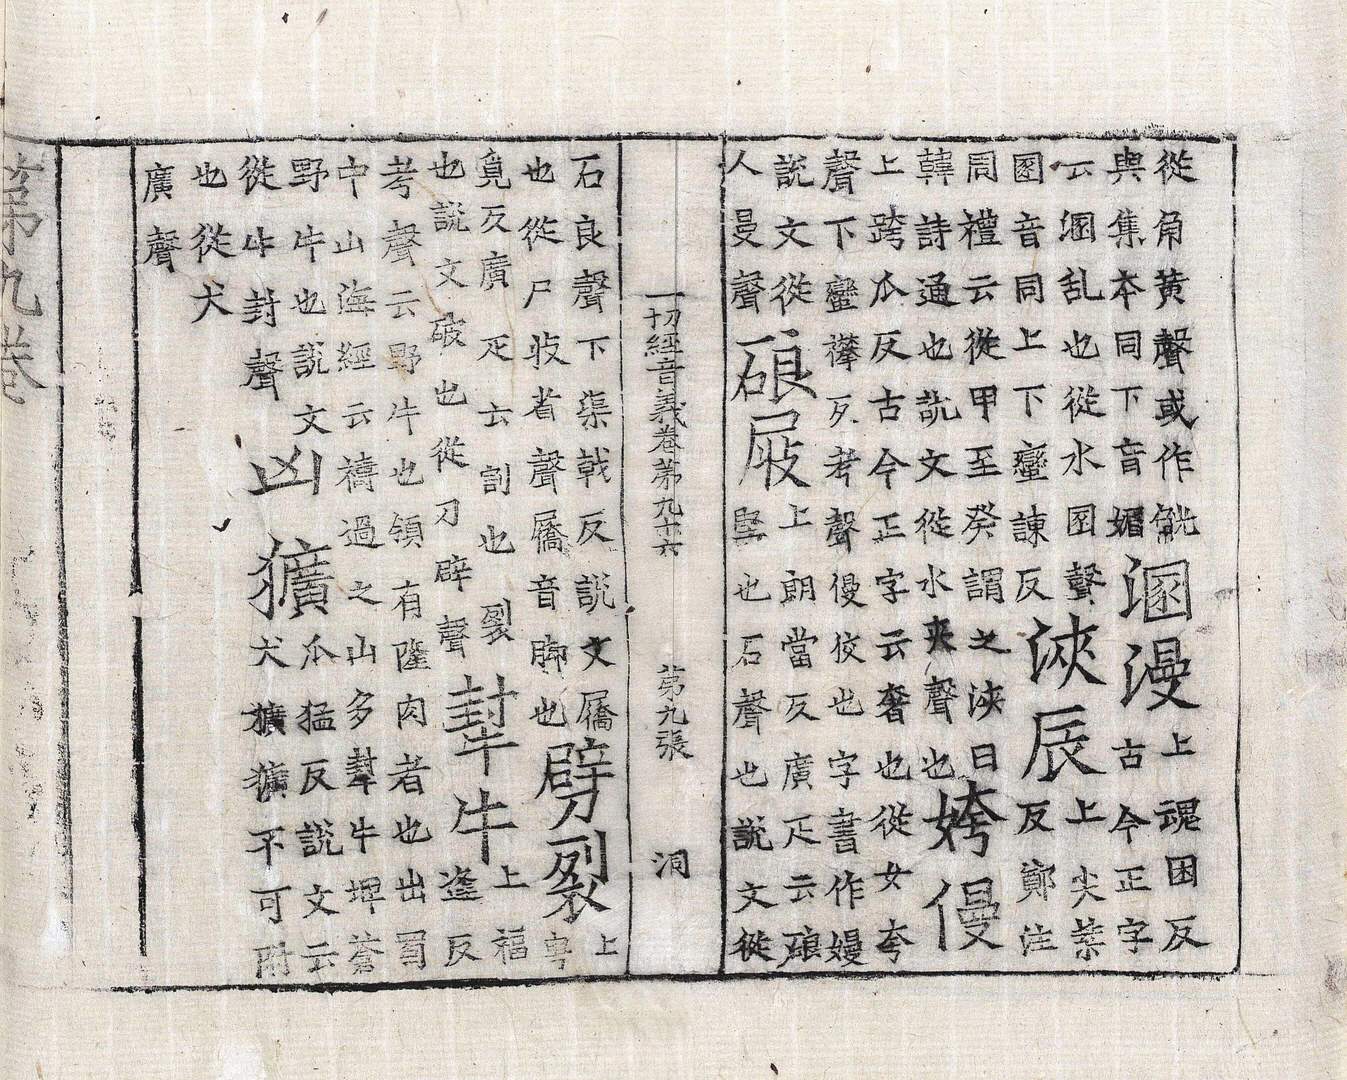 從角黄聲或作觥溷漫上魂困反
與集本同下音媚古今正字
云溷乱也從水圂聲浹辰上尖葉
圂音同上下蠻諫反反鄭注
周禮云從甲至癸謂之浹日
韓詩通也説文從水夾聲也姱僈
上跨瓜反古今正字云奢也從女夸
聲下蠻襻反考聲僈佼也字書作嫚
説文從上朗當反廣疋云硠
人曼聲硠㞏堅也石聲也説文從
一切經音義卷第九十六
第九張
洞
石良聲下渠戟反説文屩劈裂上
也從尸㞏省聲屩音脚也甹
覓反廣疋云割也裂上福
也説文破也從刀辟聲犎牛逢反
考聲云野牛也領有隆肉者也出蜀
中山海經云禱過之山多犎牛埤蒼
野牛也説文瓜猛反説文云
從牛封聲凶獷犬獷獷不可附
也從犬
廣聲
第九卷